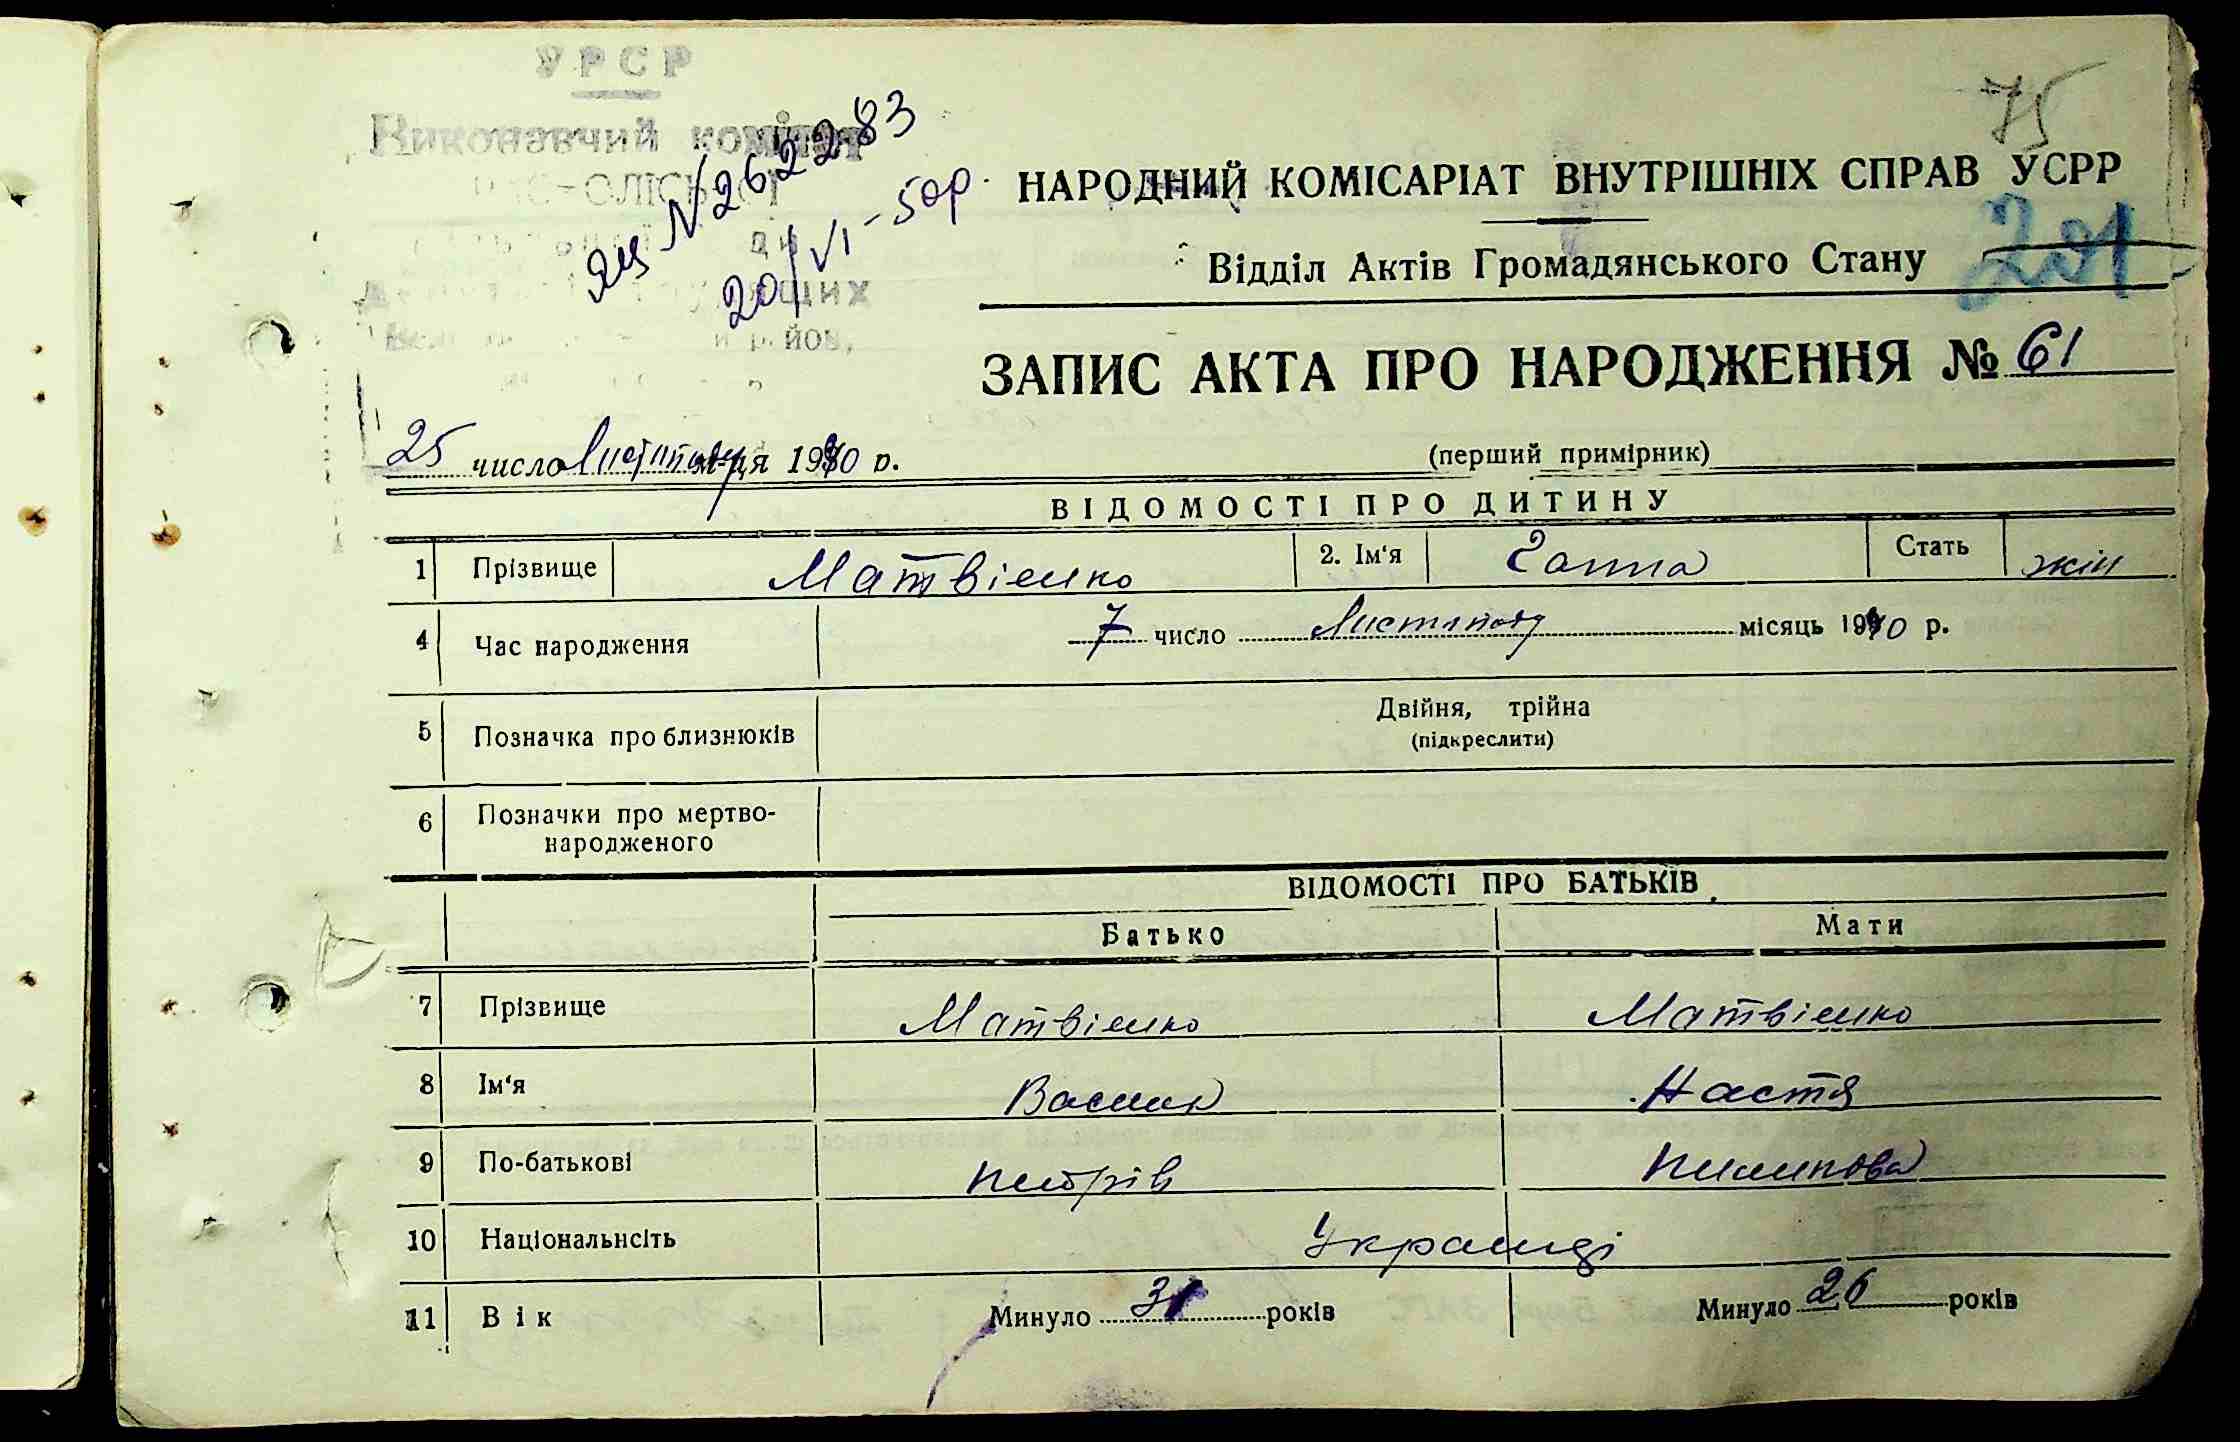 УРСР
Виконавчий комітет
75
ЯЦ № 262283
20/VI-50р.
НАРОДНИЙ КОМІСАРІАТ ВНУТРІШНІХ СПРАВ УСРР
201
Відділ Актів Громадянського Стану
ЗАПИС АКТА ПРО НАРОДЖЕННЯ № 61
25 число Листопаду м-ця 1940 р.
(перший примірник)
ВІДОМОСТІ ПРО ДИТИНУ
1 Прізвище Матвієнко 2. Ім'я Ганна Стать жін
4 Час народження 7 число Листопад місяць 1940 р.
5 Позначка про близнюків Двійня, трійна
(підкреслити)
6 Позначки про мертво-
народженого
ВІДОМОСТІ ПРО БАТЬКІВ
Батько Мати
7 Прізвище Матвієнко Матвієнко
8 Ім'я Василь Настя
9 По-батькові Петрів Пилипова
10 Національнсіть Українці
11 Вік Минуло 31 років Минуло 26 років